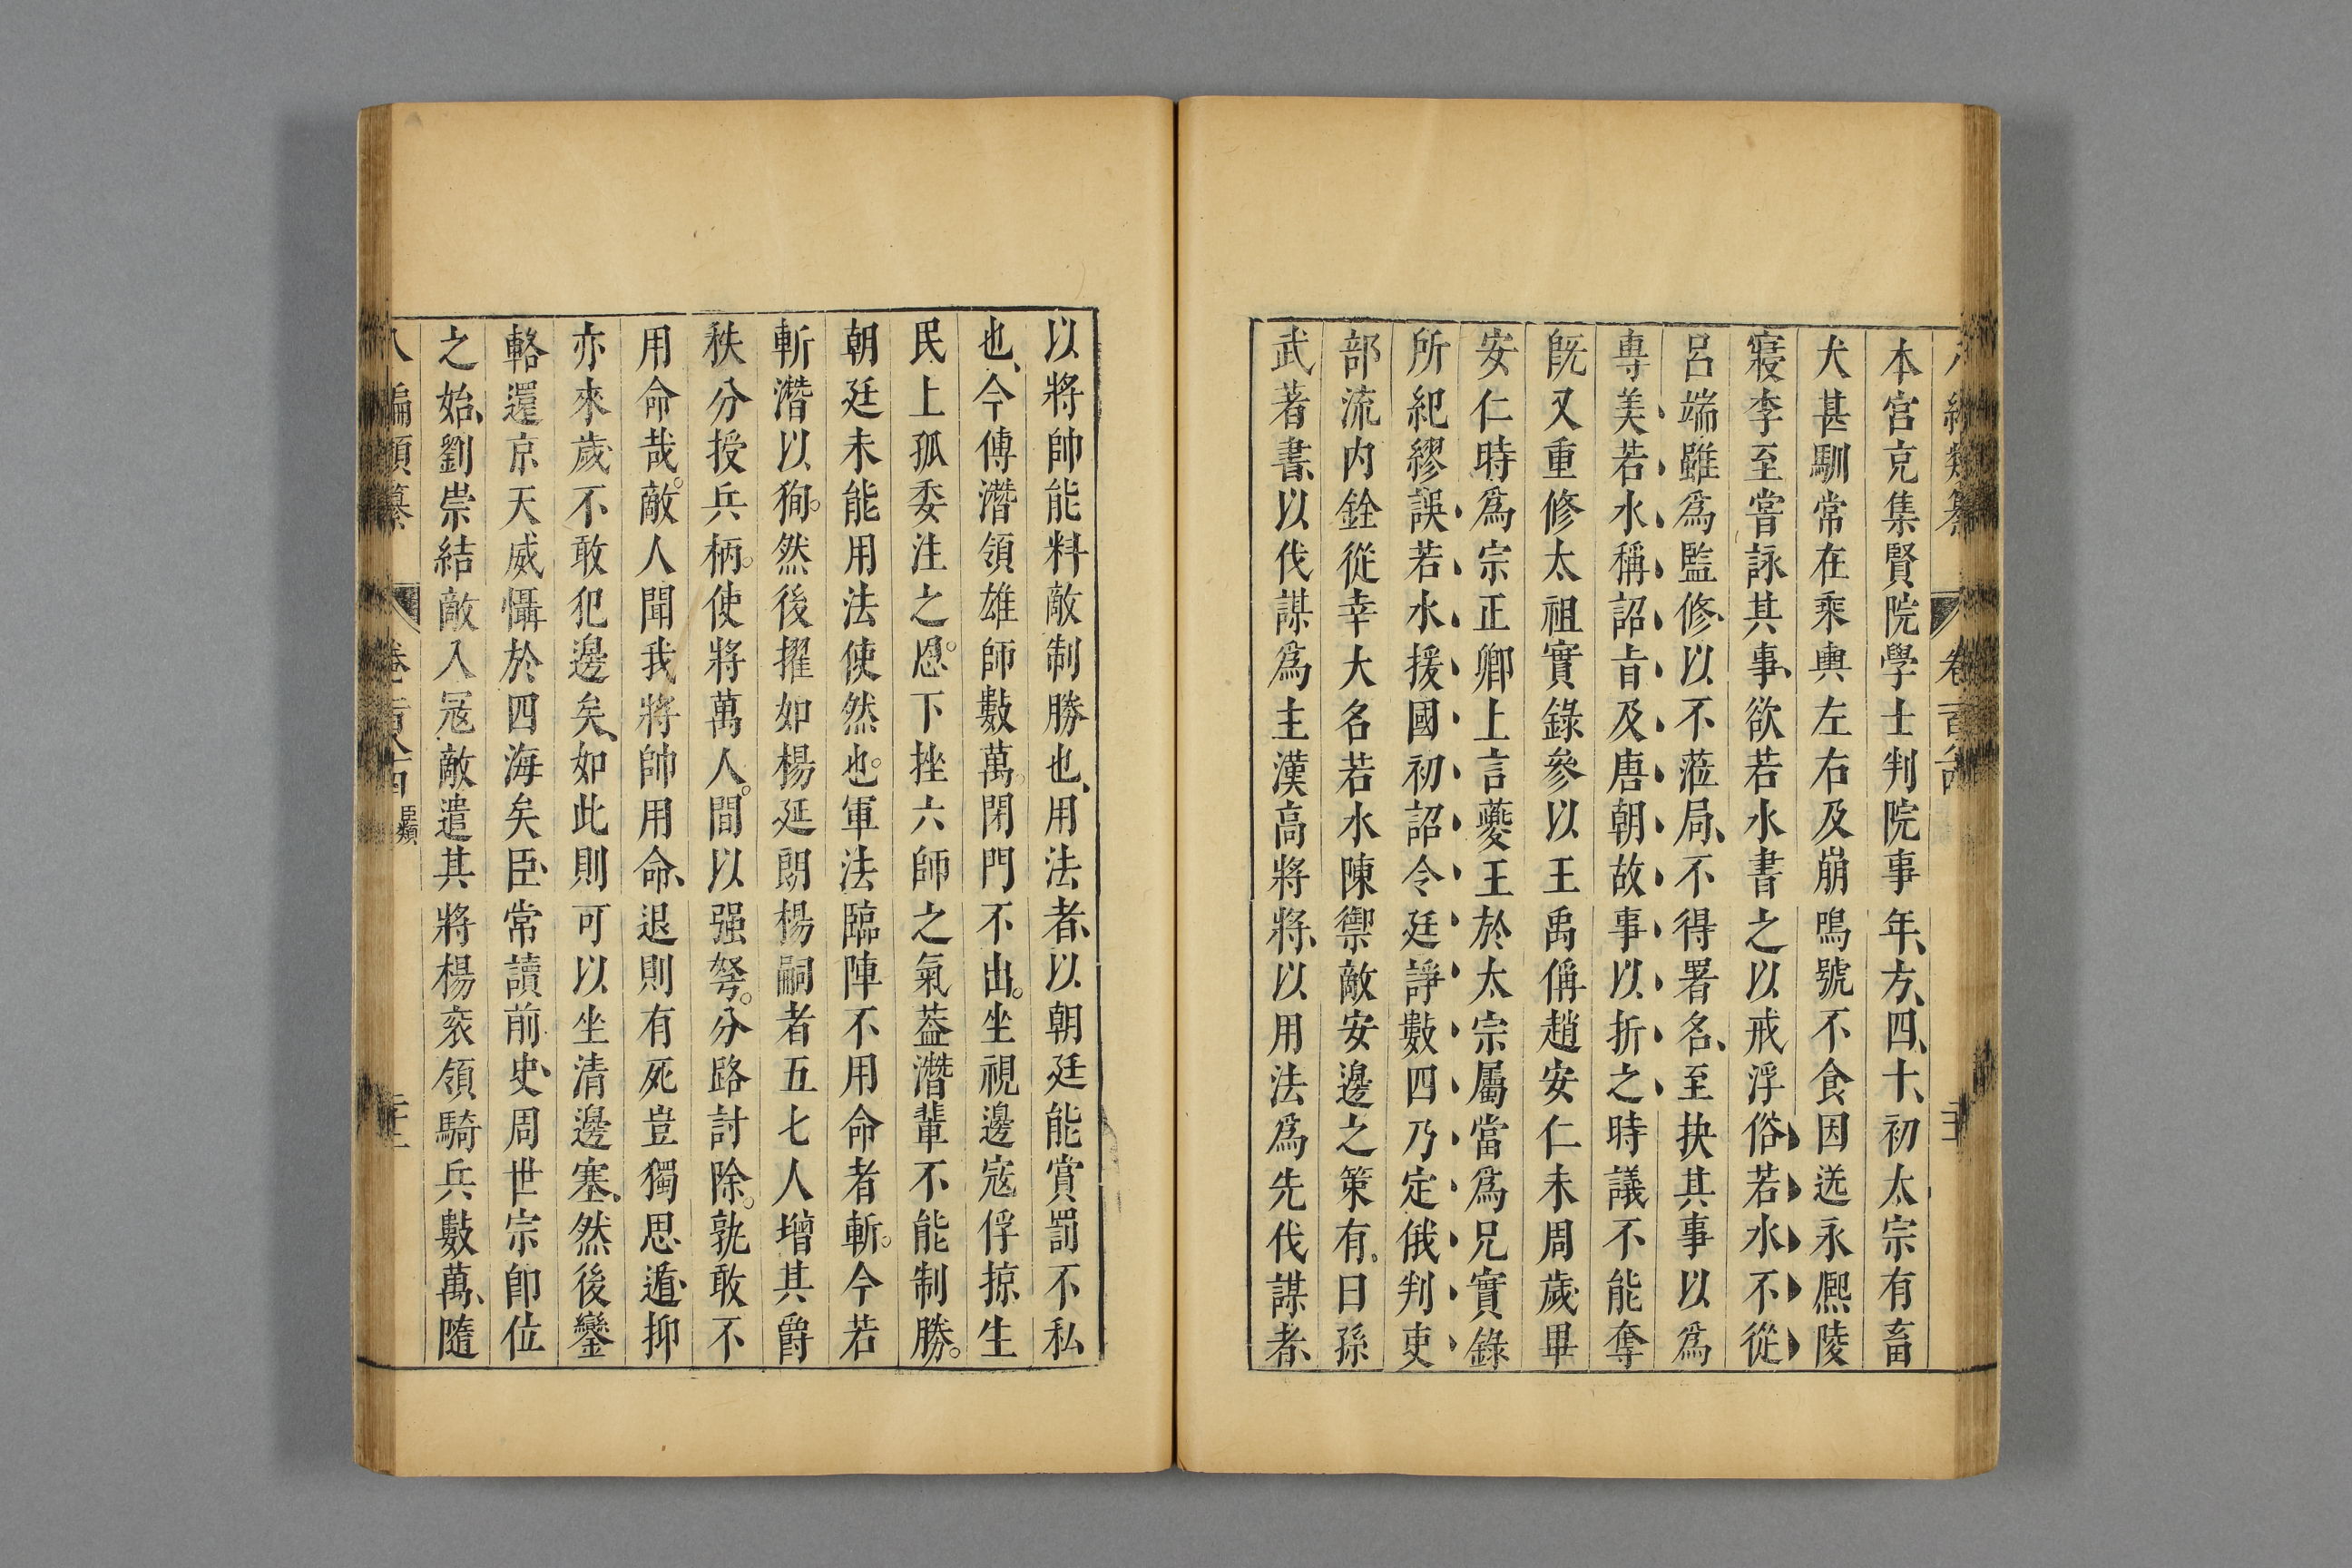 本官克集賢院學士判院事年、方、四、十、初太宗有畜
犬甚馴常在乘輿左右及崩鳴號不食因送永熈陵
寢李至嘗詠其事、欲若水書之以戒浮俗若水不從
呂端雖爲監修以不蒞局、不得署名、至抉其事以爲
專美若水稱詔旨及唐朝故事以折之時議不能奪
旣又重修太祖實錄參以王禹偁趙安仁未周歲畢
安仁時爲宗正卿上言夔王於太宗屬當爲兄實錄
所紀繆誤若水援國初詔令廷諍數四乃定俄判吏
部流内銓從幸大名若水陳禦敵安邊之策有曰孫
武著書、以伐謀爲主漢高將將、以用法爲先伐謀者、
以將帥能料敵制勝也、用法者、以朝廷能賞罰不私
也、今傅潛領雄師數萬。閉門不出。坐視邊寇俘掠生
民上孤委注之恩。下挫六師之氣葢潛輩不能制勝。
朝廷未能用法使然也。軍法臨陣不用命者斬。今若
斬潛以狥。然後擢如楊延朗楊嗣者五七人增其爵
秩分授兵柄。使將萬人。間以强弩。分路討除。孰敢不
用命哉。敵人聞我將帥用命、退則有死豈獨思遁、抑
亦來歲不敢犯邊矣、如此則可以坐清邊塞、然後鑾
輅還京天威懾於四海矣臣、常讀前史、周世宗卽位
之始、劉崇結敵入冦敵遣其將楊衮領騎兵數萬、隨
八編類纂 卷一百八十四 臣類